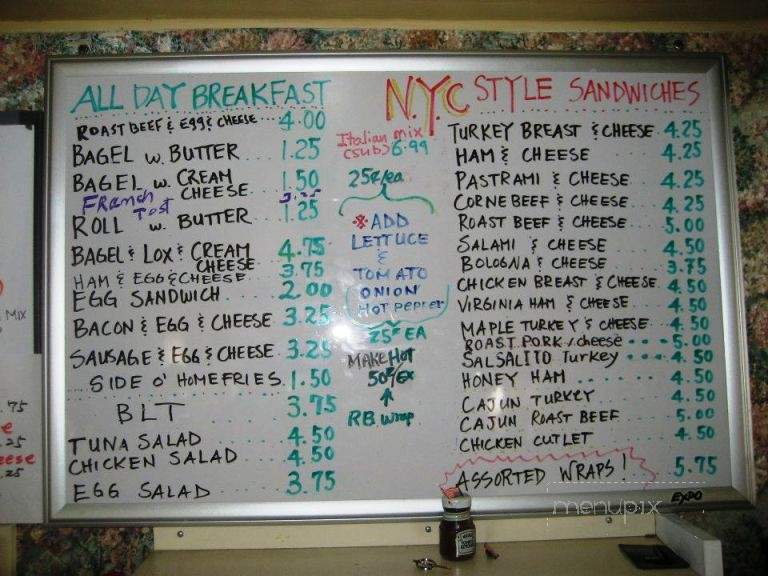 ALL DAY BREAKFAST
ROAST BEEF & EGG & CHEESE 4.00
BAGEL w. BUTTER 1.25
BAGEL w. CREAM CHEESE 1.50
FRanch Tost
ROLL w. BUTTER 1.25
BAGEL & LOX & CREAM CHEESE 4.75
HAM & EGG & CHEESE 3.75
EGG SANDWICH 2.00
BACON & EGG & CHEESE 3.25
SAUSAGE & EGG & CHEESE 3.25
SIDE O' HOMEFRIES 1.50
BLT 3.75
TUNA SALAD 4.50
CHICKEN SALAD 4.50
EGG SALAD 3.75
Italian mix
(SUB) 6.99
25¢/ea
※ADD
LETTUCE
&
TOMATO
ONION
Hot PePPer
25¢ EA
MAKE HOT
50¢/EX
RB Wrap
N.Y.C STYLE SANDWICHES
TURKEY BREAST & CHEESE 4.25
HAM & CHEESE 4.25
PASTRAMI & CHEESE 4.25
CORNE BEEF & CHEESE 4.25
ROAST BEEF & CHEESE 5.00
SALAMI & CHEESE 4.50
BOLOGNA & CHEESE 3.75
CHICKEN BREAST & CHEESE 4.50
VIRGINIA HAM & CHEESE 4.50
MAPLE TURKEY & CHEESE 4.50
ROAST PORK/cheese 5.00
SALSALITO Turkey 4.50
HONEY HAM 4.50
CAJUN TURKEY 4.50
CAJUN ROAST BEEF 5.00
CHICKEN CUTLET 4.50
ASSORTED WRAPS! 5.75
EXPO
menupix
MIX
.75
.25
.25